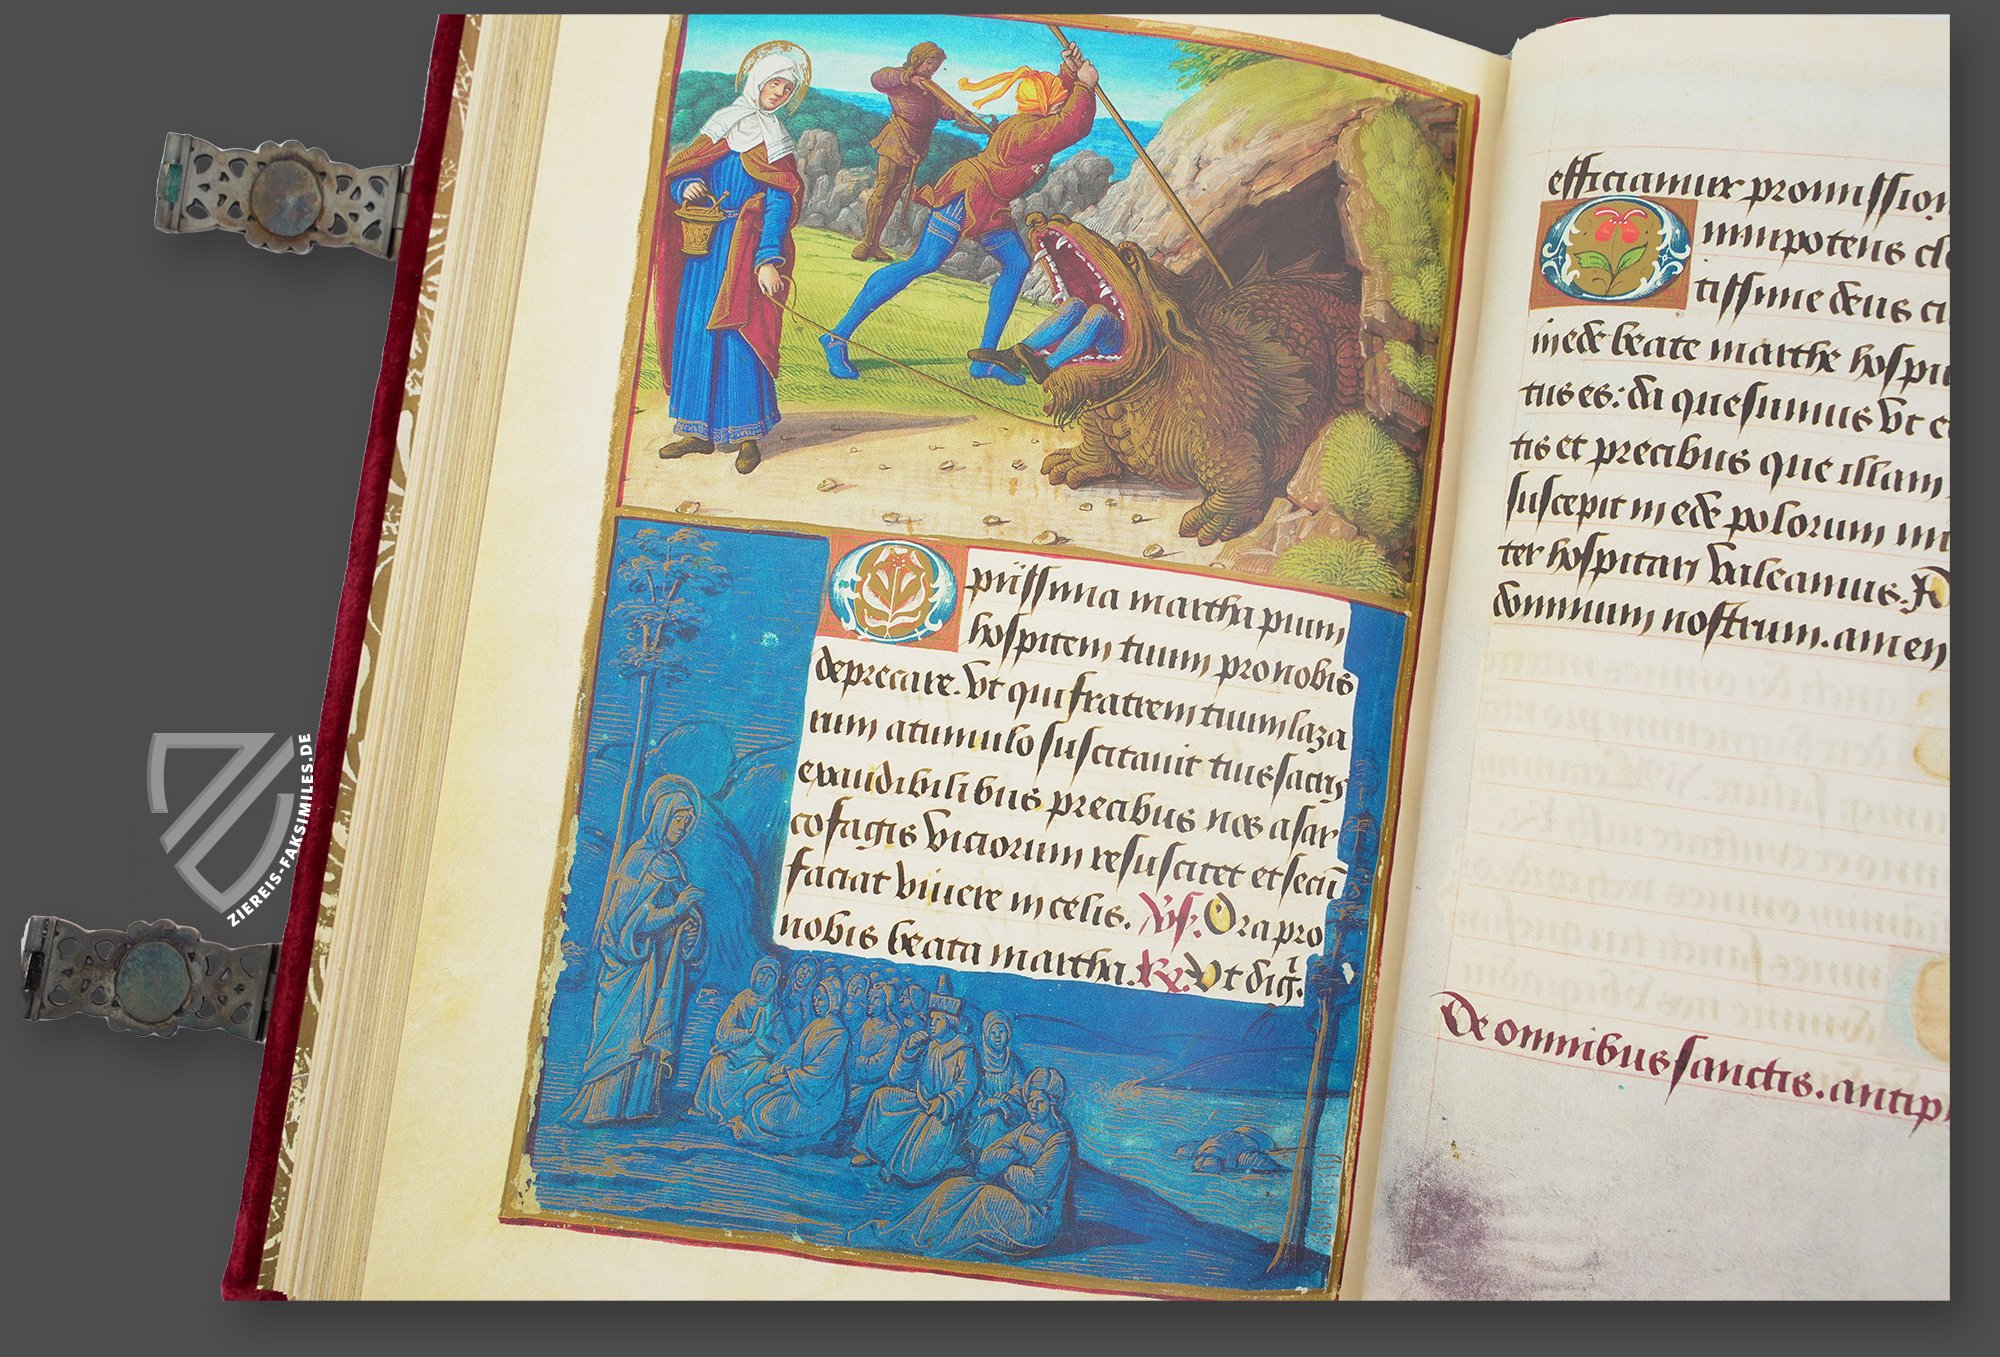 O piissima martha pium
hospitem tuum pro nobis
deprecare. Vt qui fratrem tuum laza
rum a tumulo suscitauit tuis sacris
exaudibilibus precibus nos a sar
cofagis viciorum resuscitet et secū
faciat viuere in celis. Vs. Ora pro
nobis beata martha. Rx. Vt dig.
efficiamur promission
Omnipotens cle
tissime deus cu
in ede beate marthe hospi
tus es: da quesumus vt e
tis et precibus que illam
suscepit in ede polorum
ter hospitari valeamus. P
dominum nostrum. amen
De omnibus sanctis. antip
ZIEREIS-FAKSIMILES.DE